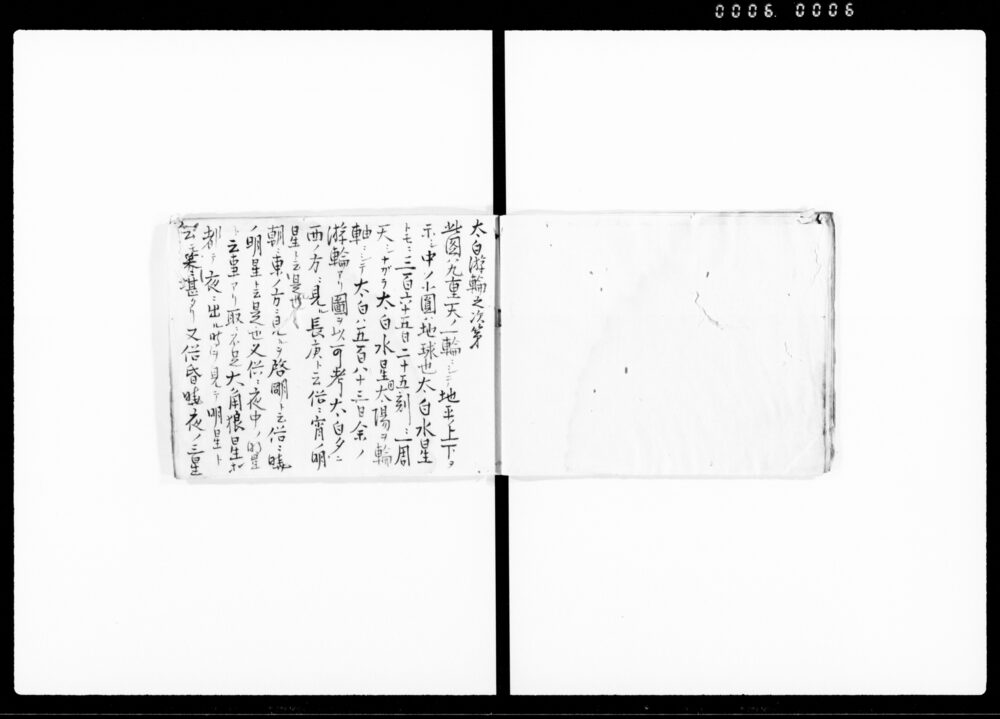 0006 0006
太白游輪之次第
此図ハ九重天ノ一輪ニシテ地平ノ上下ヲ
示シ中ノ小圓ハ地球也太白水星
トモニ三百六十五日二十五刻ニ一周
天シナガラ太白水星太陽ヲ輪
軸ニシテ太白ハ五百八十三日余ノ
游輪アリ圖ヲ以可考太白夕ニ
西ノ方ニ見ル長庚ト云俗ニ宵ノ明
星ト云是也
朝ニ東ノ方ニ見ルヲ啓明ト云俗ニ暁
ノ明星ト云是也又俗ニ夜中ノ明星
ト云事アリ取ニ不足大角狼星ホ
都テ夜ニ出ル時ヲ見テ明星ト
云棄ニ堪タリ又俗昏暁夜ノ三星